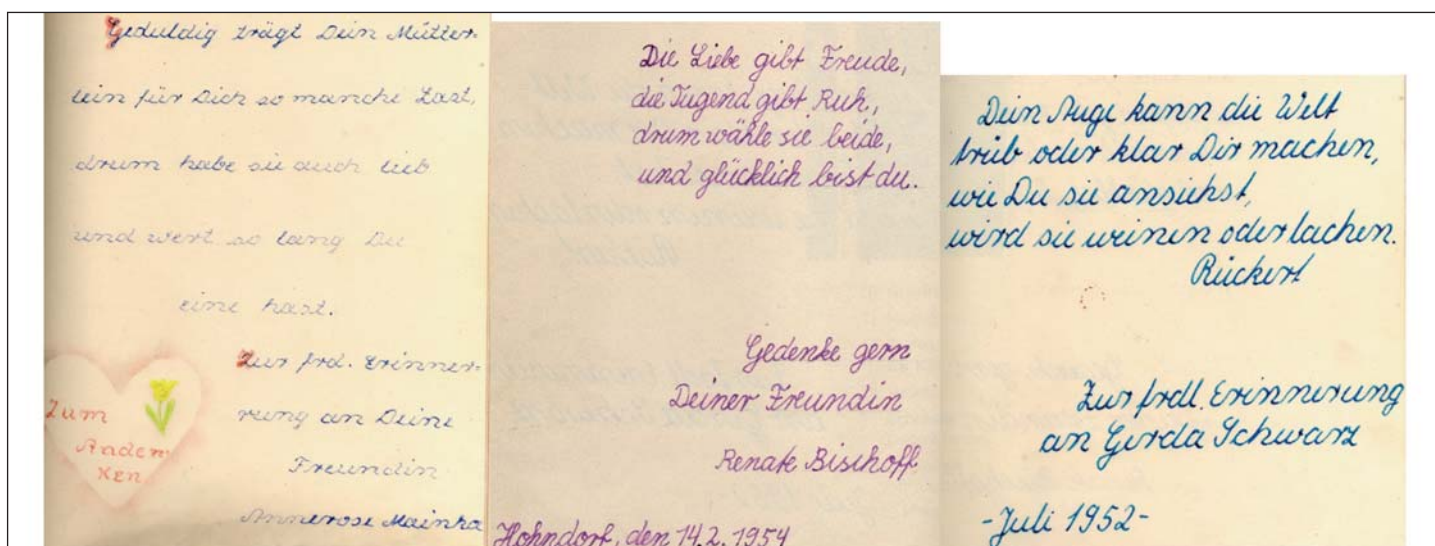 Geduldig trägt Dein Mütter-
lein für Dich so manche Last,
drum habe sie auch lieb
und wert so lang Du
eine hast.
Zur frd. Erinner-
rung an Deine
Freundin
Annerose Mainka
Zum
Anden-
ken
Die Liebe gibt Freude,
die Tugend gibt Ruh,
drum wähle sie beide,
und glücklich bist du.
Gedenke gern
Deiner Freundin
Renate Bischoff
Hohndorf, den 14.2.1954
Dein Auge kann die Welt
trüb oder klar Dir machen,
wie Du sie ansiehst,
wird sie weinen oder lachen.
Rückert
Zur frdl. Erinnerung
an Gerda Schwarz
-Juli 1952-